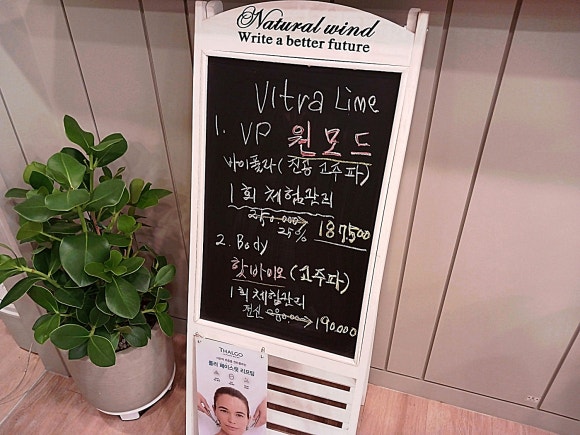 Natural wind
Write a better future
Vltra Lime
1. VP 윈모드
바이폴라(진공고주파)
1회 체험관리
250.000→
25% 187.500
2. Body
핫바이오(고주파)
1회 체험관리
전신 190.000
THALGO
롤러 페이스룩 리모델